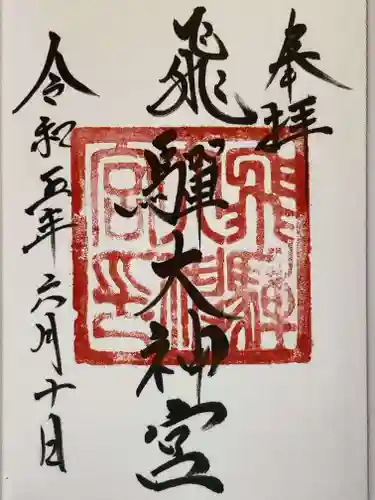 奉拝
飛驒大神宮
令和五年六月十日
飛驒
大神
宮印